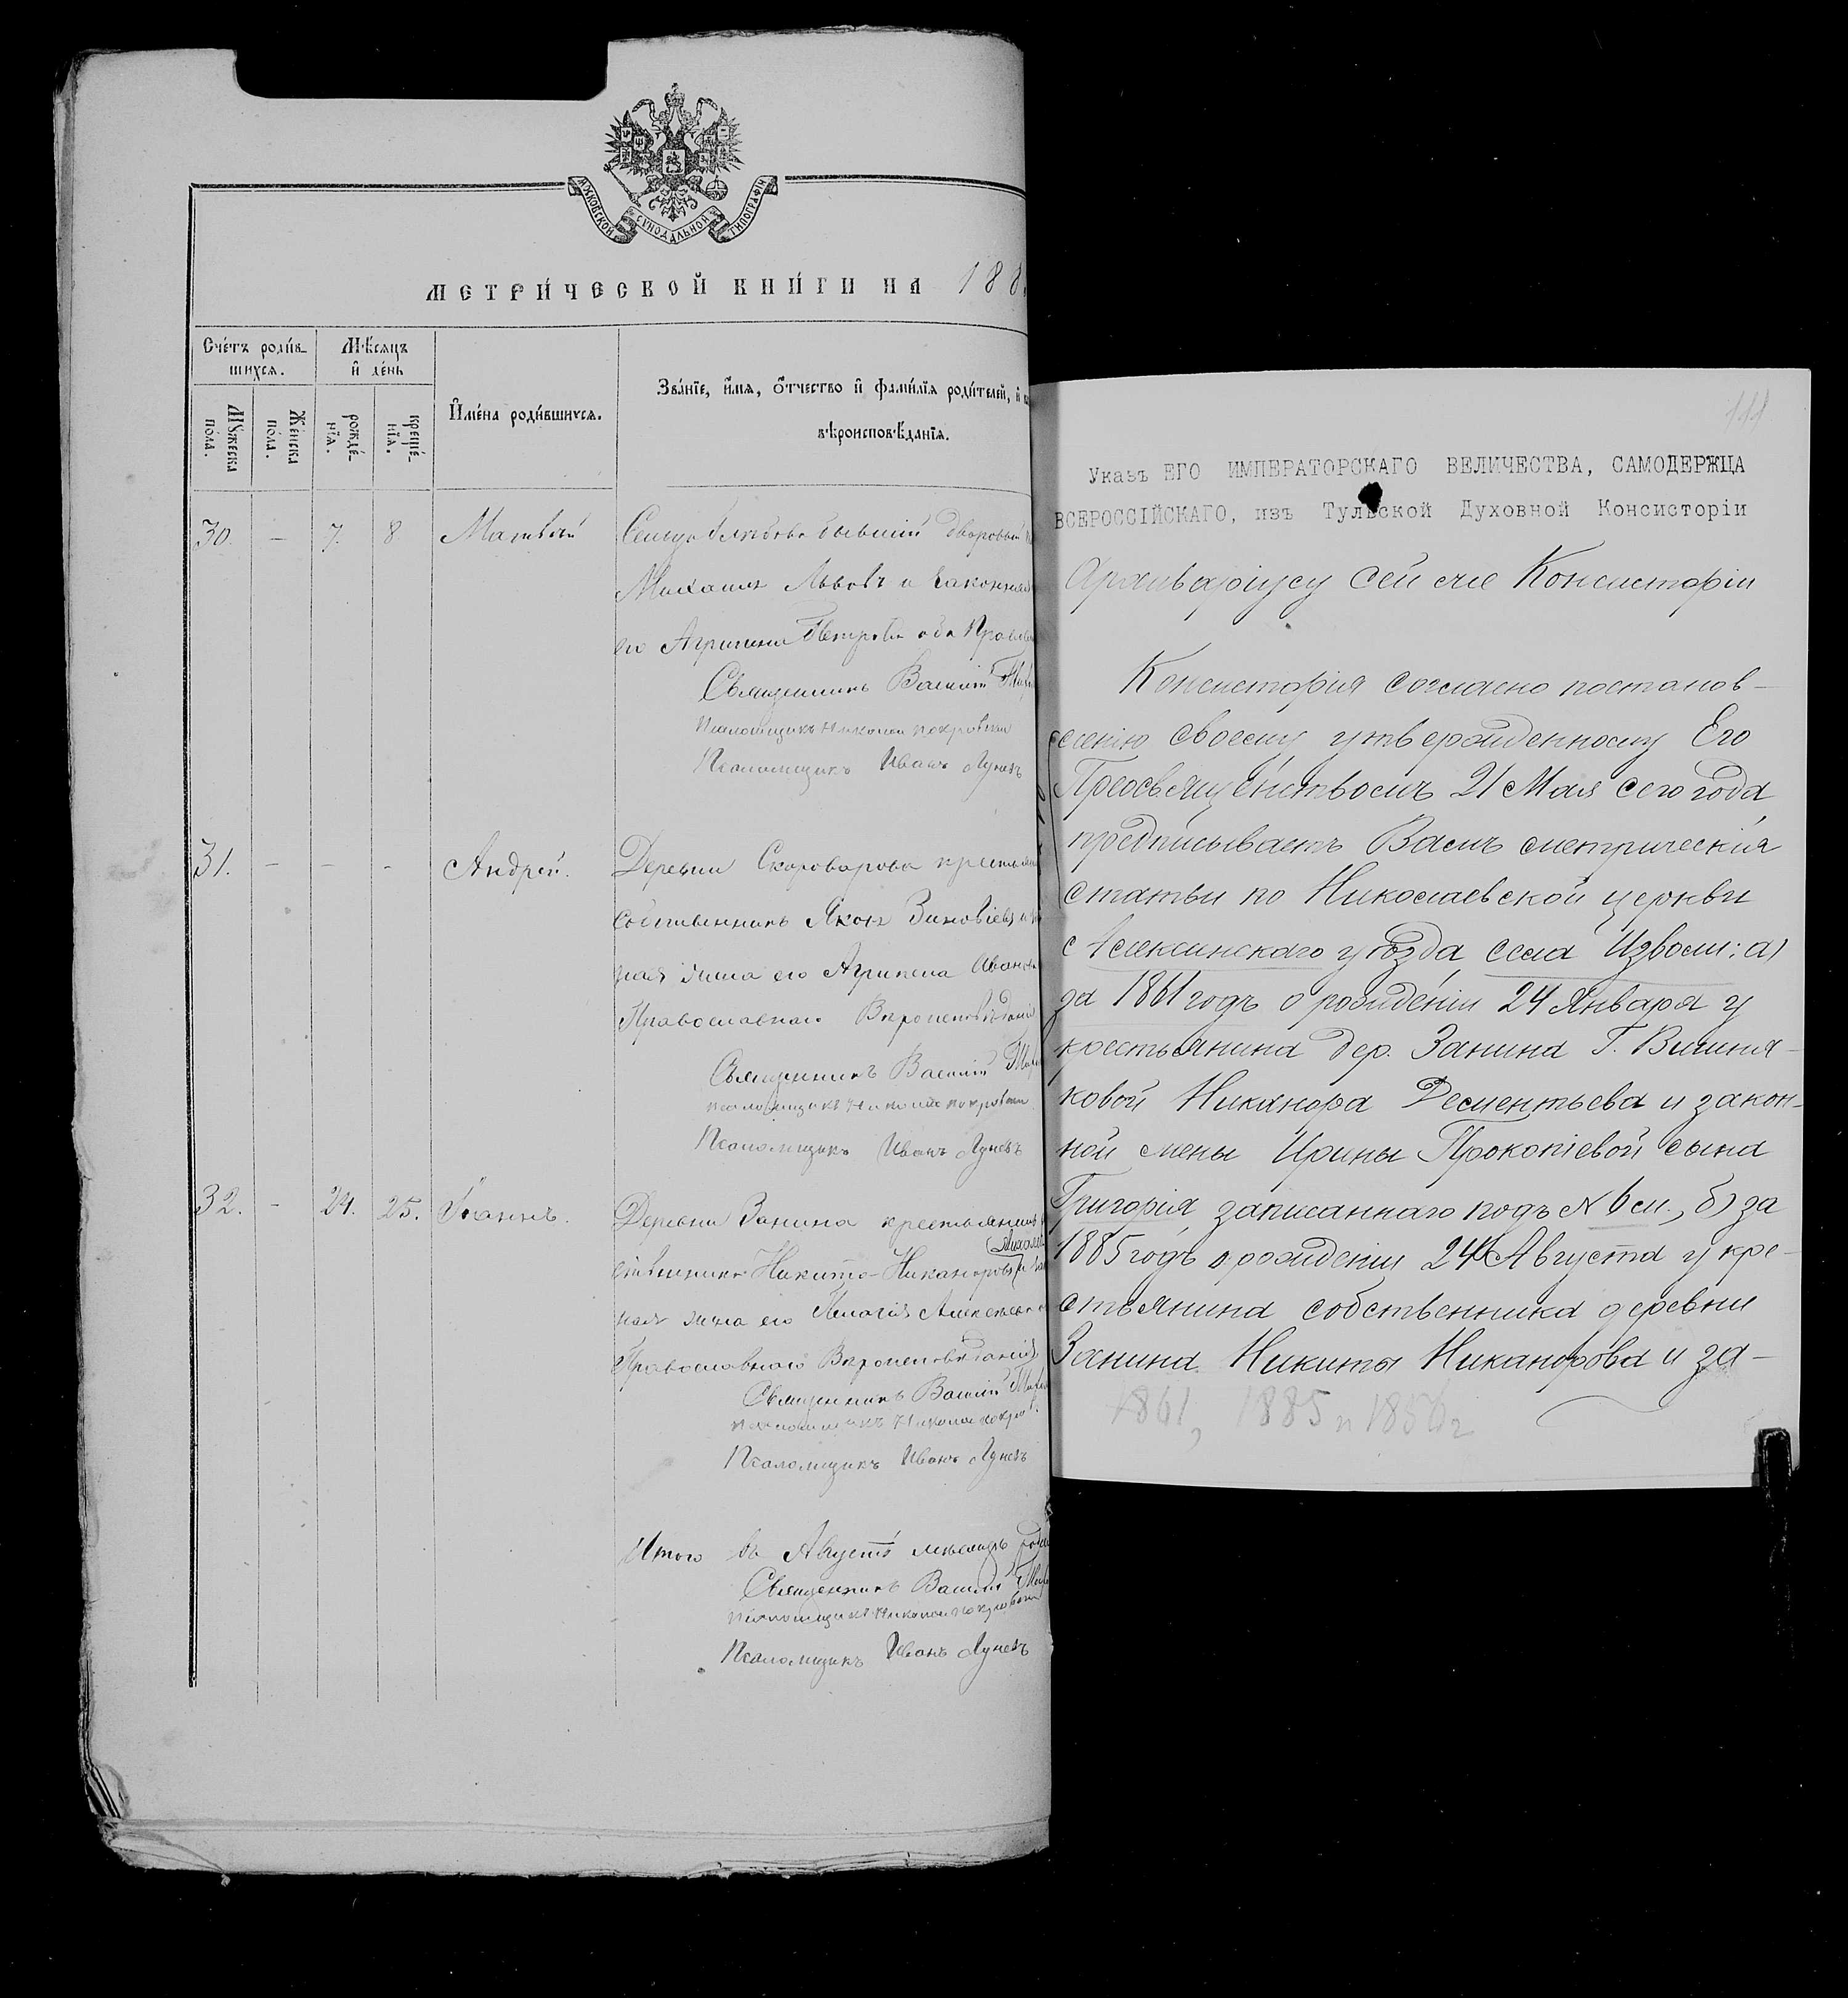 МОСКОВСКОЙ СѴНОДАЛЬНОЙ ТИПОГРАФІИ
МЕТРИ́ЧЕСКОЙ КНИ́ГИ НА 188
Сче́тъ роди́в-
шихсѧ.
Мѣ́сѧцъ
и҆ де́нь
Мꙋ́жеска
по́ла.
Же́нска
по́ла.
рожде́-
нїѧ.
креще́-
нїѧ.
И҆мена̀ роди́вшихсѧ.
Зва́нїе, и҆́мѧ, ѻ҆́тчество и҆ фами́лїѧ роди́телей, и҆
вѣроисповѣ́данїѧ.
30. - 7. 8 Матвѣй
бывшій дворовый
Михаилъ Львовъ и законная
его Агрипена Петрова оба
Священникъ Василій
Псаломщикъ Николай Покровскій
Псаломщикъ Иванъ Луневъ
31. - - - Андрей.
Деревни Скороварова крестьян
собственникъ Яковъ Зиновіевъ и
ная жена его Агрипена Иванова
Православнаго Вѣроисповѣданія
Священникъ Василій
псаломщикъ Николай Покровскій
Псаломщикъ Иванъ Луневъ
32. - 24. 25. Іоаннъ.
Деревни Занина крестьянинъ
ственникъ Никита Никаноровъ и
ная жена его Пелагія Алексѣева
Православнаго Вѣроисповѣданія
Священникъ Василій
псаломщикъ Николай Покров
Псаломщикъ Иванъ Луневъ
Итого въ Августѣ мѣсяцѣ
Священникъ Василій
псаломщикъ Николай Покровскій
Псаломщикъ Иванъ Луневъ
Указъ ЕГО ИМПЕРАТОРСКАГО ВЕЛИЧЕСТВА, САМОДЕРЖЦА
ВСЕРОССІЙСКАГО, изъ Тульской Духовной Консисторіи
Архиваріусу сей же Консисторіи
Консисторія согласно постанов-
ленію своему утвержденному Его
Преосвященствомъ 21 Мая сего года
предписываетъ Вамъ метрическія
статьи по Николаевской церкви
Алексинскаго уѣзда села Изволи: а)
за 1861 годъ о рожденіи 24 Января у
крестьянина дер. Занина Г. Вишня-
ковой Никанора Дементьева и закон-
ной жены Ирины Прокопіевой сына
Григорія записаннаго подъ № 6 м., б) за
1885 годъ о рожденіи 24 Августа у кре-
стьянина собственника деревни
Занина Никиты Никанорова и за-
1861, 1885 и 1856 г